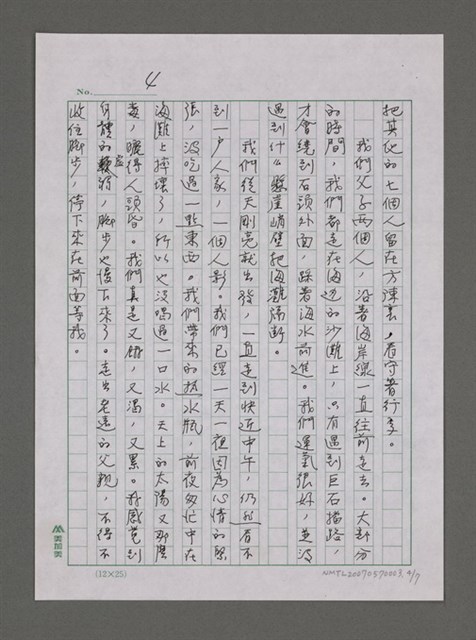 No. 4
把其他的七個人留在方陳甚，看守着行李。
我們父子兩個人，沿着海岸線一直往前走去。大部分
的時間，我們都走在海边的沙灘上，只有遇到巨石擋路，
才會繞到石頭外面，踩着海水前進。我們運氣很好，並沒
遇到什么懸崖峭壁把海灘隔断。
我們從天剛亮就出發，一直走到快近中午，仍然看不
到一户人家，一個人影。我們已經一天一夜因為心情的緊
張，沒吃過一點東西。我們帶來的熱水瓶，前夜匆忙中在
海灘上摔壞了，所以也沒喝過一口水。天上的太陽又那麼
毒，曬得人頭昏。我們真是又餓，又渴，又累。我感覺到
身體的虛弱，脚步也慢下來了。走出老遠的父親，不得不
收住脚步，停下來在前面等我。
美加美
(12×25)
NMTL20070570003, 4/7